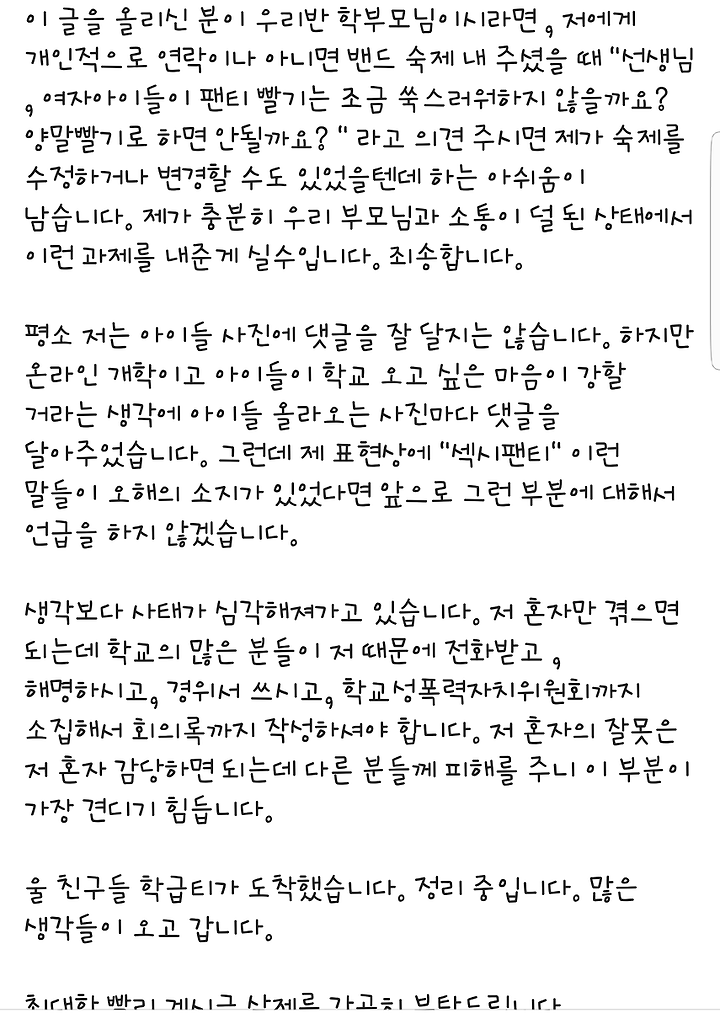 이 글을 올리신 분이 우리반 학부모님이시라면, 저에게
개인적으로 연락이나 아니면 밴드 숙제 내 주셨을 때 "선생님
, 여자아이들이 팬티 빨기는 조금 쑥스러워하지 않을까요?
양말빨기로 하면 안될까요? " 라고 의견 주시면 제가 숙제를
수정하거나 변경할 수도 있었을텐데 하는 아쉬움이
남습니다. 제가 충분히 우리 부모님과 소통이 덜 된 상태에서
이런 과제를 내준게 실수입니다. 죄송합니다.
평소 저는 아이들 사진에 댓글을 잘 달지는 않습니다. 하지만
온라인 개학이고 아이들이 학교 오고 싶은 마음이 강할
거라는 생각에 아이들 올라오는 사진마다 댓글을
달아주었습니다. 그런데 제 표현상에 "섹시팬티" 이런
말들이 오해의 소지가 있었다면 앞으로 그런 부분에 대해서
언급을 하지 않겠습니다.
생각보다 사태가 심각해져가고 있습니다. 저 혼자만 겪으면
되는데 학교의 많은 분들이 저 때문에 전화받고,
해명하시고, 경위서 쓰시고, 학교성폭력자치위원회까지
소집해서 회의록까지 작성하셔야 합니다. 저 혼자의 잘못은
저 혼자 감당하면 되는데 다른 분들께 피해를 주니 이 부분이
가장 견디기 힘듭니다.
울 친구들 학급티가 도착했습니다. 정리 중입니다. 많은
생각들이 오고 갑니다.
최대한 빨리 게시글 삭제를 간곡히 부탁드립니다